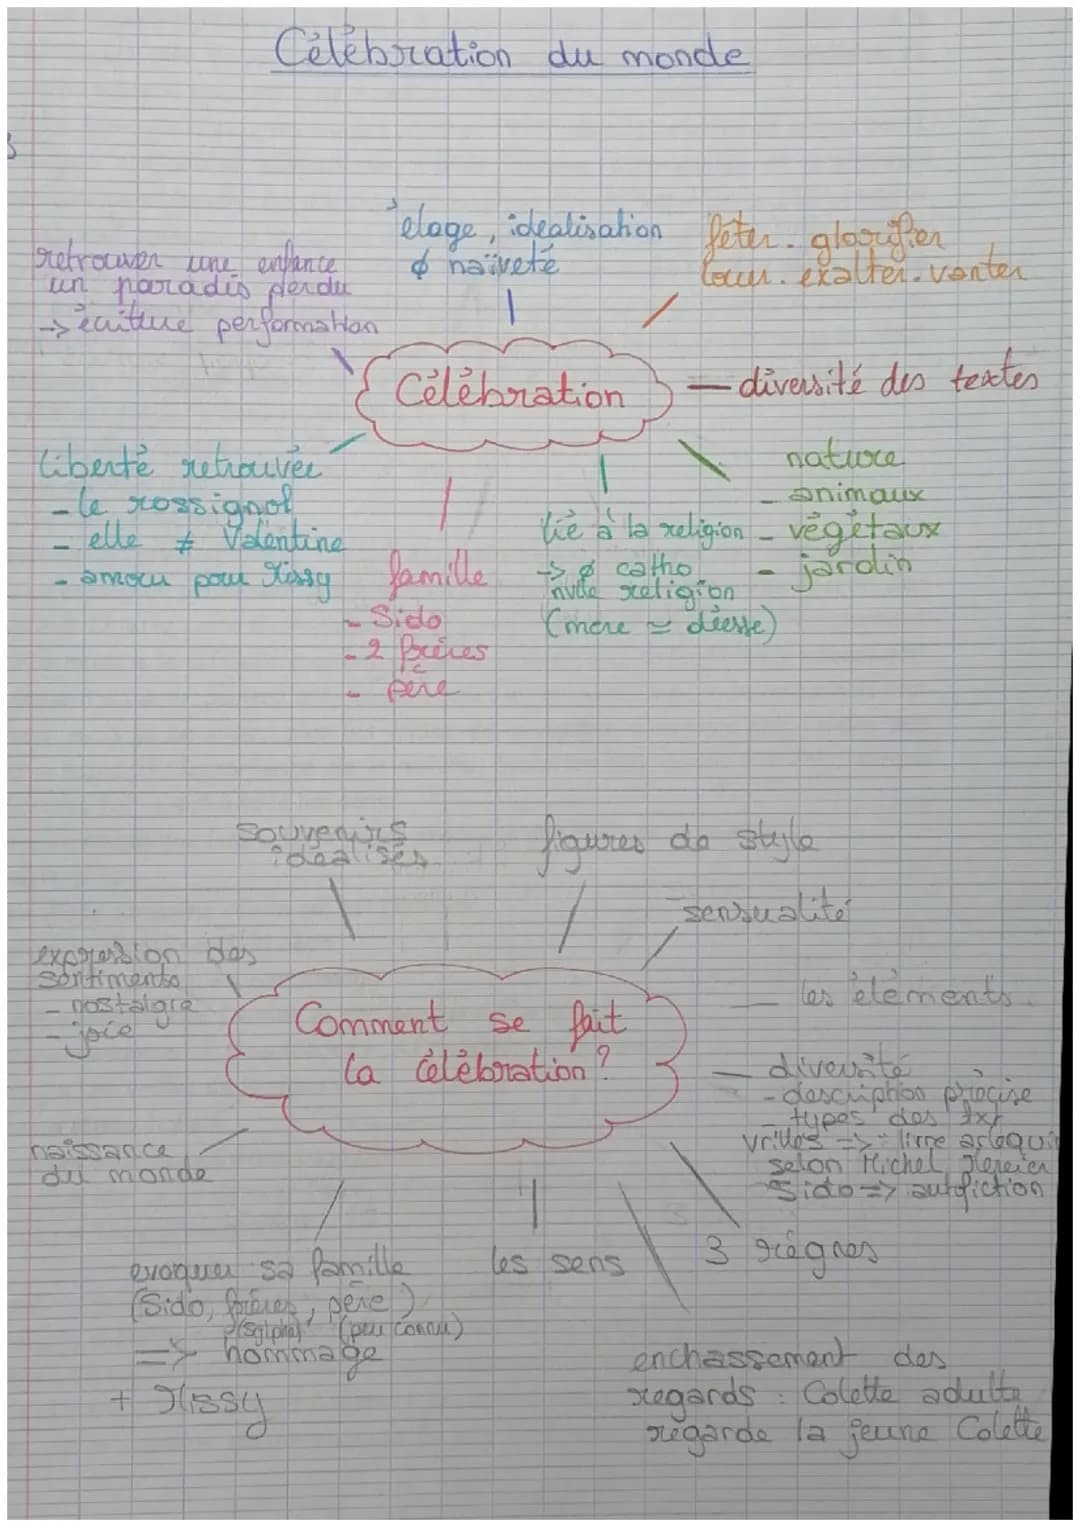 Célébration du monde
élage, idéalisation
∅ naïveté
fêter. glorifier
louer. exalter. vanter
retrouver une enfance
un paradis perdu
-> écriture performation
Célébration
— diversité des textes
liberté retrouvée
- le rossignol
- elle ≠ Valentine
- amour pour Missy
famille
- Sido
- 2 frères
- père
lié à la religion
-> ∅ catho
nvlle religion
(mère ≃ déesse)
nature
- animaux
- végétaux
- jardin
souvenirs
idéalisés
figures de style
sensualité
expression des
sentiments
- nostalgie
- joie
Comment se fait
la célébration ?
— les éléments
— diversité
- description précise
- types des txt
vrilles => livre arlequi
selon Michel Mercier
Sido => autofiction
naissance
du monde
evoquer sa famille
(Sido, frères, père)
(sylphes) (peu connu)
=> hommage
+ Missy
les sens
3 règnes
enchassement des
regards : Colette adulte
regarde la jeune Colette